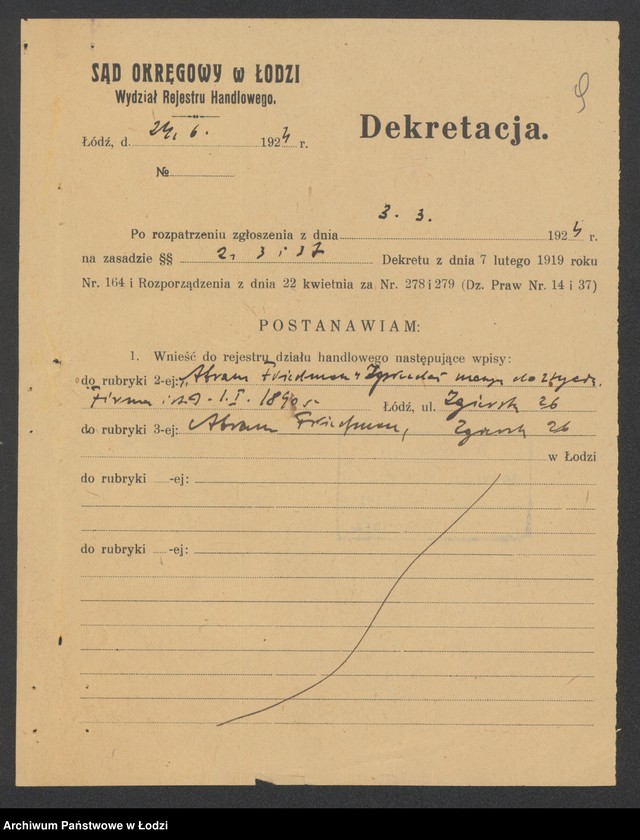 9
SĄD OKRĘGOWY w ŁODZI
Wydział Rejestru Handlowego.
Dekretacja.
Łódź, d. 24. 6. 1924 r.
№
Po rozpatrzeniu zgłoszenia z dnia 3. 3. 1924 r.
na zasadzie §§ 2, 3 i 37 Dekretu z dnia 7 lutego 1919 roku
Nr. 164 i Rozporządzenia z dnia 22 kwietnia za Nr. 278 i 279 (Dz. Praw Nr. 14 i 37)
POSTANAWIAM:
1. Wnieść do rejestru działu handlowego następujące wpisy:
do rubryki 2-ej: „Abram Friedman" Sprzedaż
Firma istn. 1.I.1890 r. Łódź, ul. Zgierska 26
do rubryki 3-ej: Abram Friedman, Zgierska 26
w Łodzi
do rubryki -ej:
do rubryki -ej:
Archiwum Państwowe w Łodzi